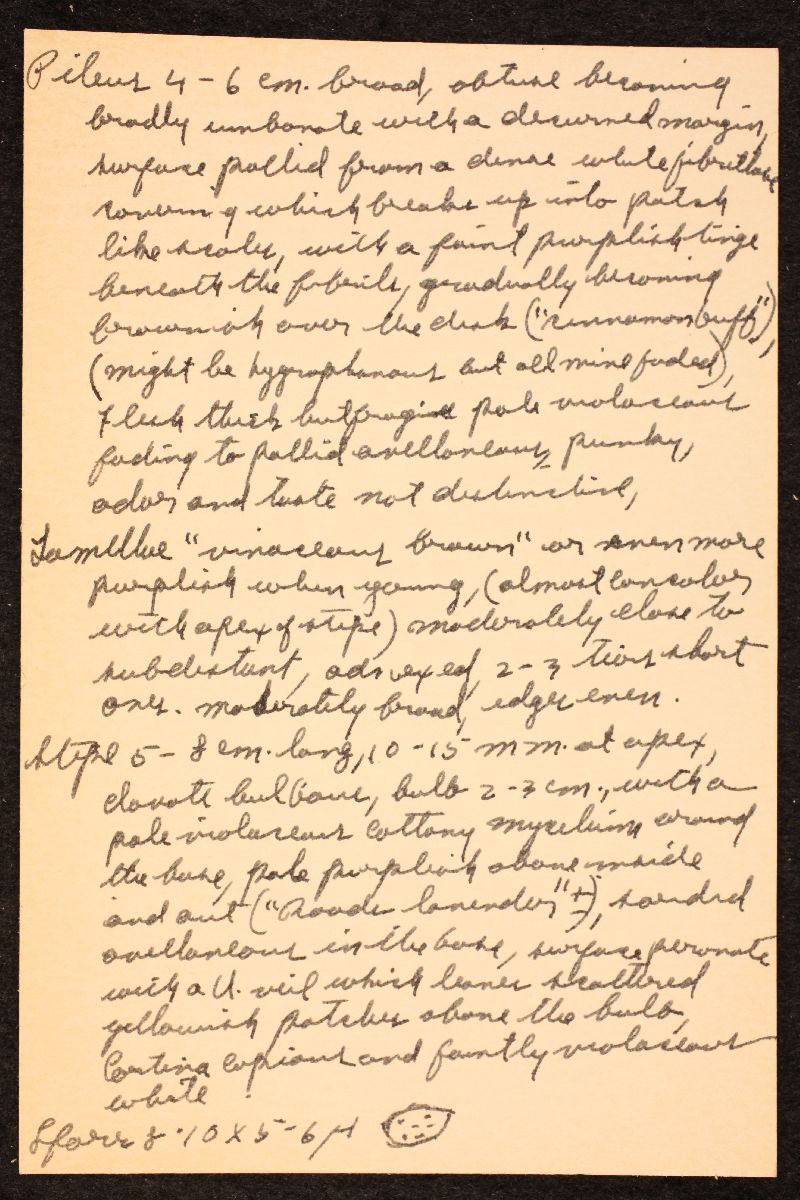 Pileus 4 - 6 cm. broad, obtuse becoming
bradly umbonate with a decurved margin,
surface pallid from a dense white fibrillose
covering which breaks up into patch
like scales, with a faint purplish tinge
beneath the fibrils, gradually becoming
brownish over the disk ("cinnamon buff"),
(might be hygrophanous but all mine faded),
flesh thick but fragile pale violaceous
fading to pallid avellaneous, punky,
odor and taste not distinctive,
Lamellae "vinaceous brown" or even more
purplish when young, (almost concolor
with apex of stipe) moderately close to
subdistant, adnexed, 2-3 tiers short
ones. moderately broad, edges even.
Stipe 5 - 8 cm. long, 10 - 15 mm. at apex,
clavate bulbous, bulb 2-3 cm., with a
pale violaceous cottony mycelium around
the base, pale purplish above inside
and out ("Hoods lavender" ±), sordid
avellaneous in the base, surface peronate
with a U. veil which leaves scattered
yellowish patches above the bulb,
Cortina copious and faintly violaceous
white.
Spores 8-10 X 5-6 µ